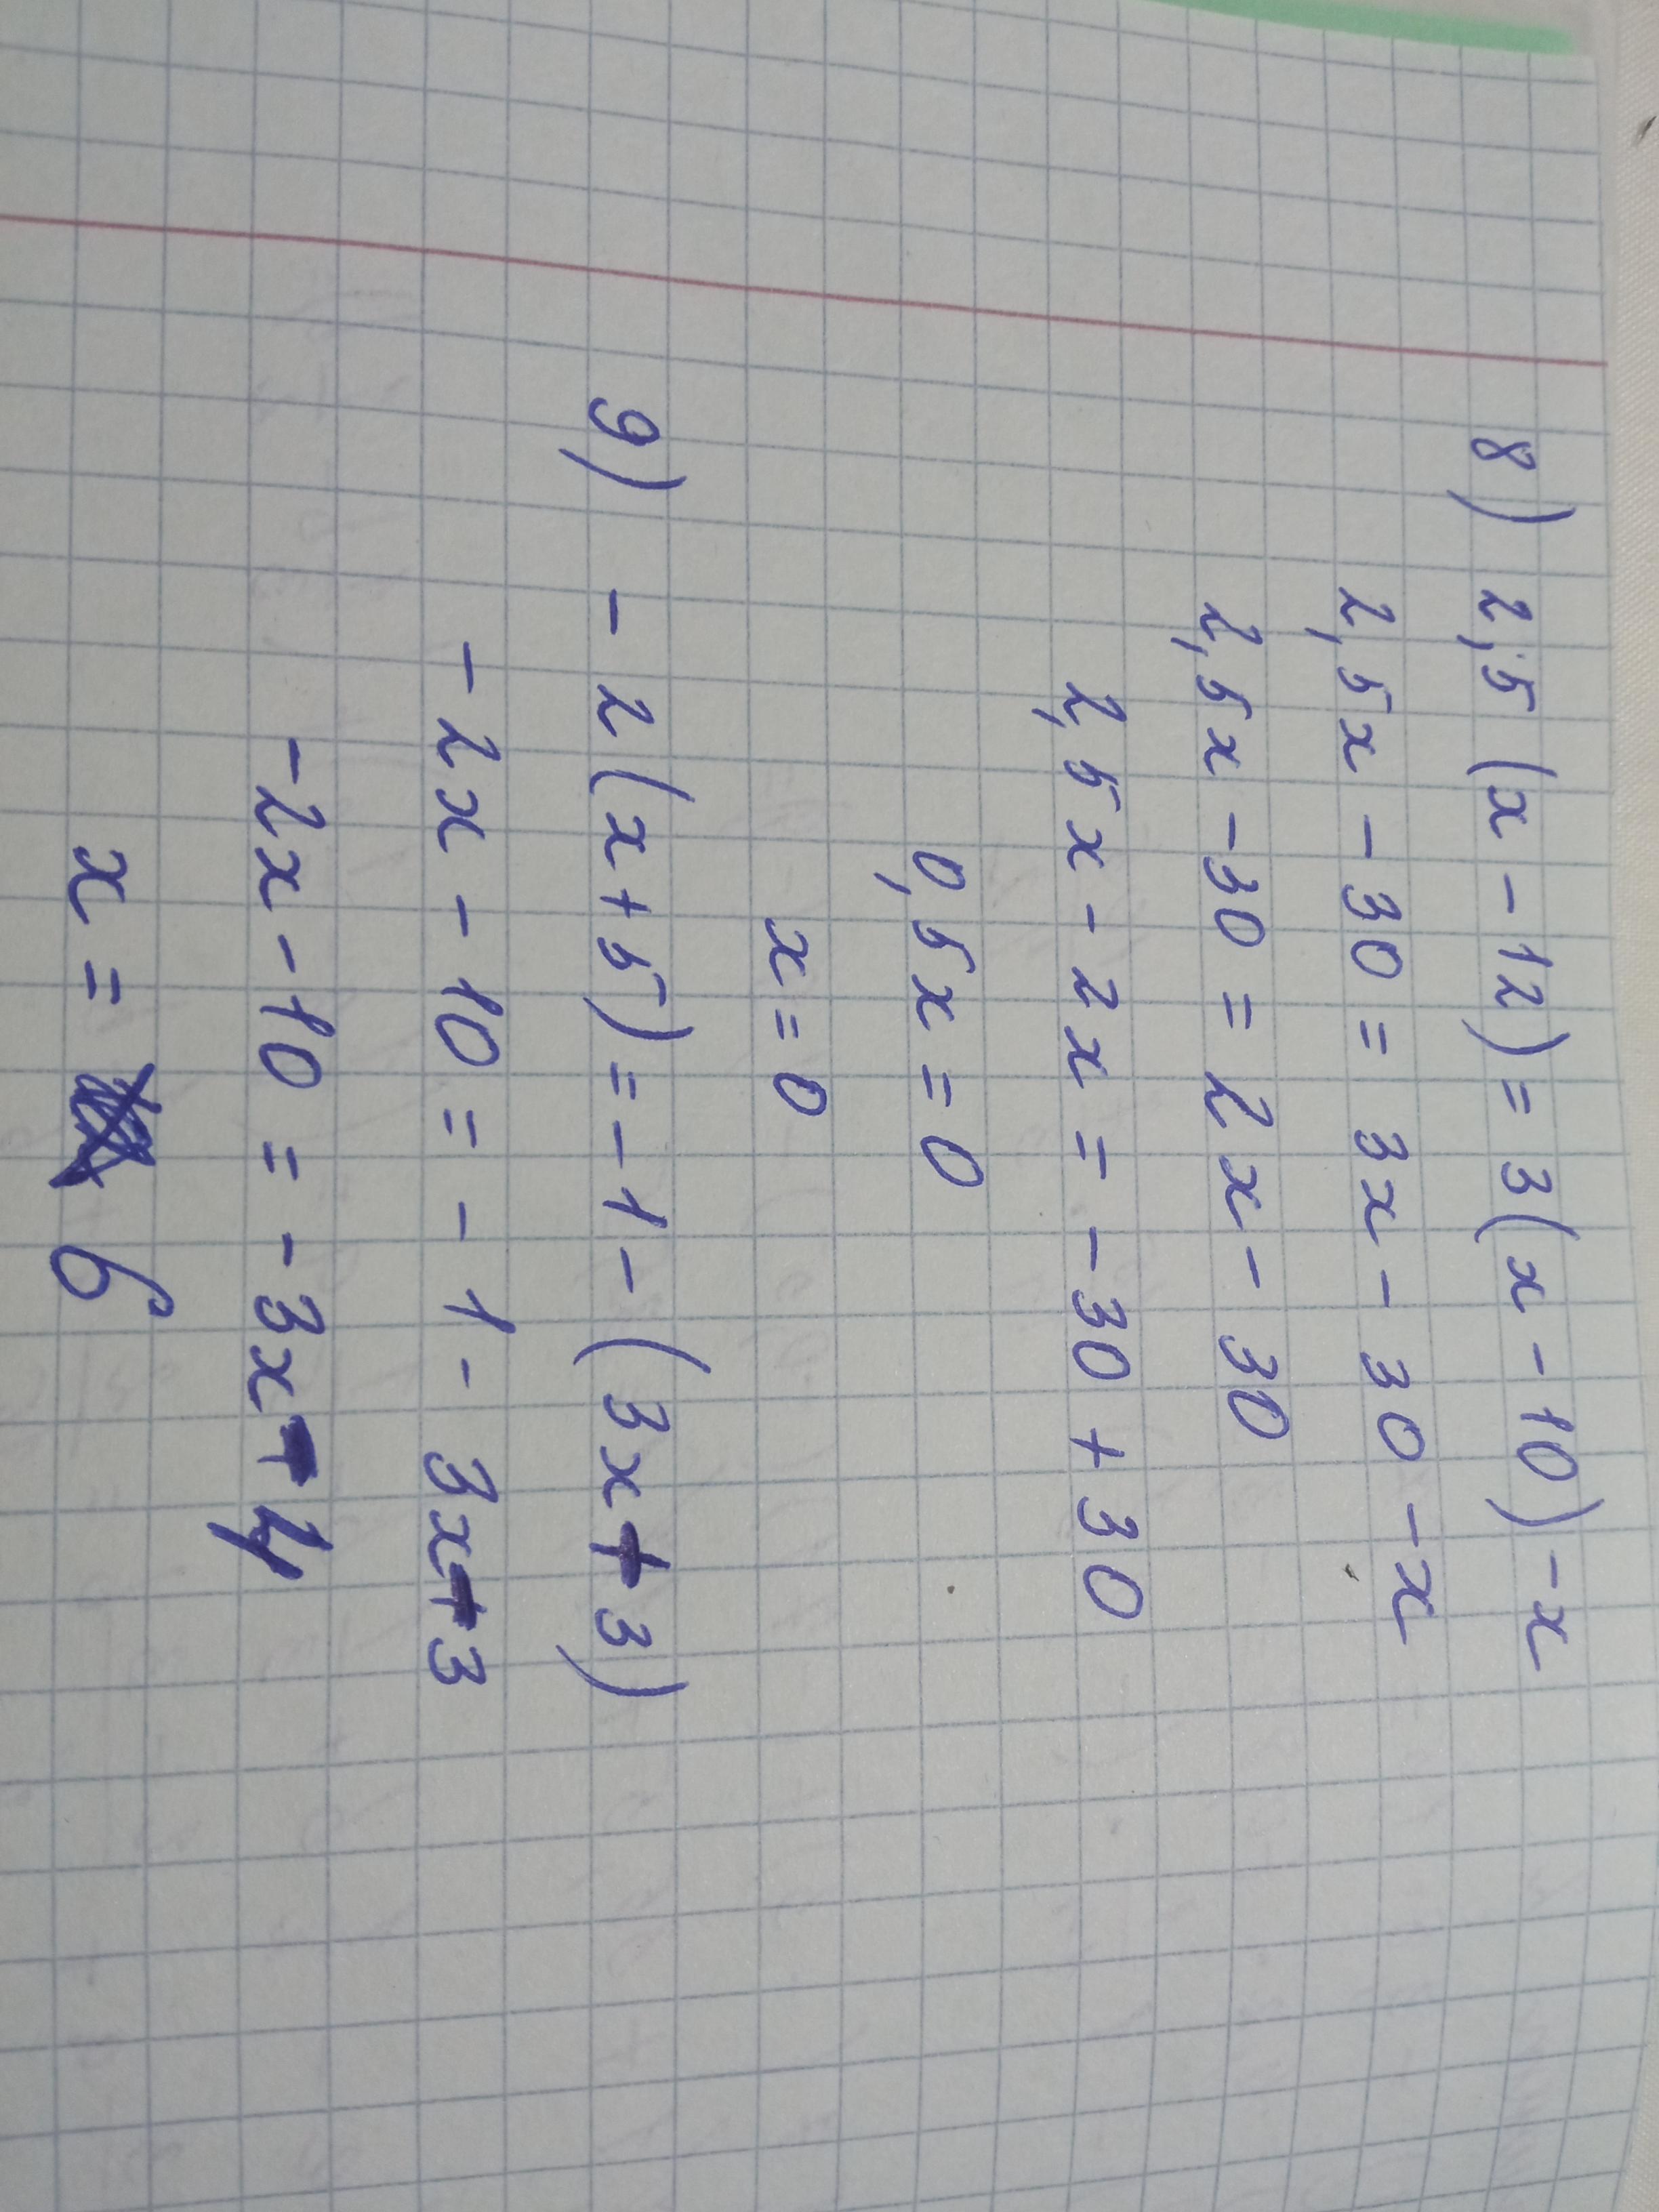 8) 2,5(x-12)=3(x-10)-x
2,5x-30=3x-30-x
2,5x-30=2x-30
2,5x-2x=-30+30
0,5x=0
x=0
9) -2(x+5)=-1-(3x+3)
-2x-10=-1-3x-3
-2x-10=-3x-4
x= 6